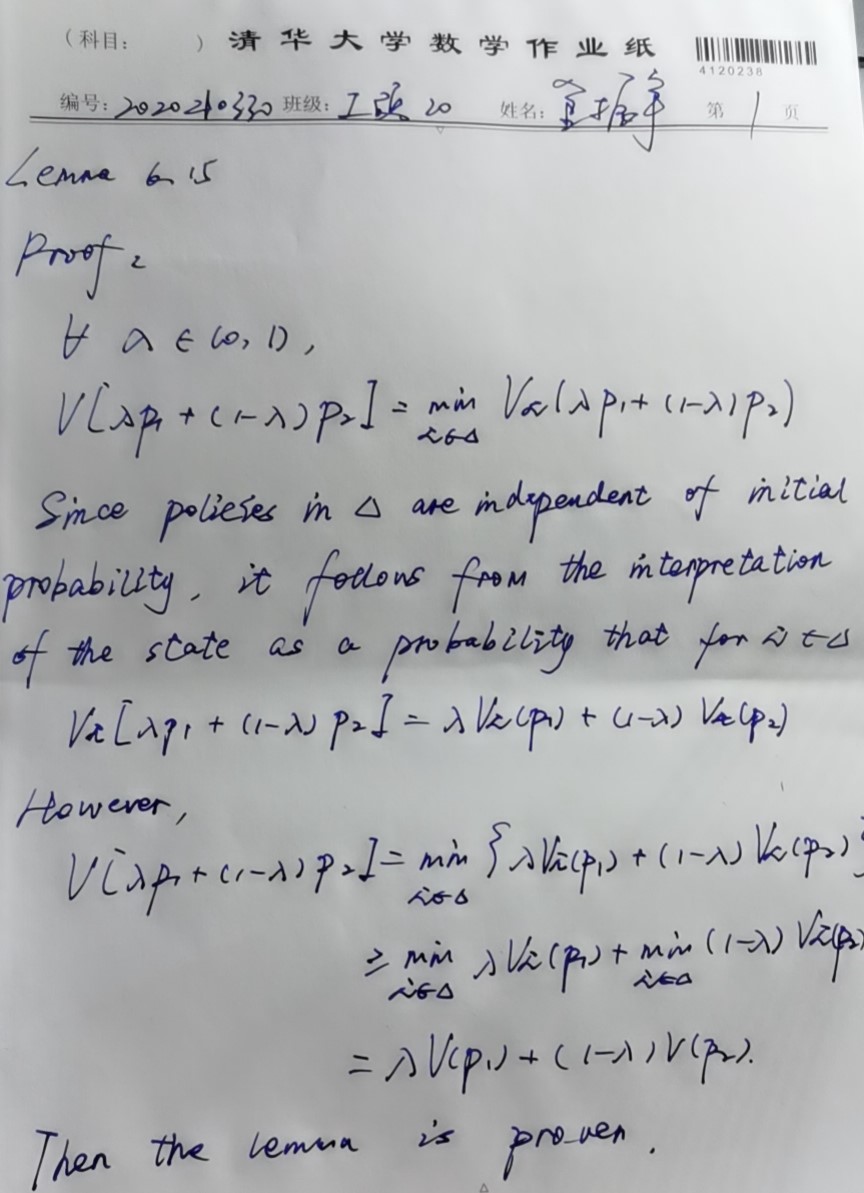 (科目: ) 清华大学数学作业纸
4120238
编号: 2020210330 班级: 工硕 20 姓名: 第 1 页
Lemma 6.15
Proof:
∀ λ ∈ (0, 1),
V[λp₁ + (1-λ)p₂] = min_{π∈Δ} Vπ(λp₁ + (1-λ)p₂)
Since policies in Δ are independent of initial
probability, it follows from the interpretation
of the state as a probability that for π ∈ Δ
Vπ[λp₁ + (1-λ)p₂] = λVπ(p₁) + (1-λ)Vπ(p₂)
However,
V[λp₁ + (1-λ)p₂] = min_{π∈Δ} {λVπ(p₁) + (1-λ)Vπ(p₂)}
≥ min_{π∈Δ} λVπ(p₁) + min_{π∈Δ} (1-λ)Vπ(p₂)
= λV(p₁) + (1-λ)V(p₂).
Then the lemma is proven.